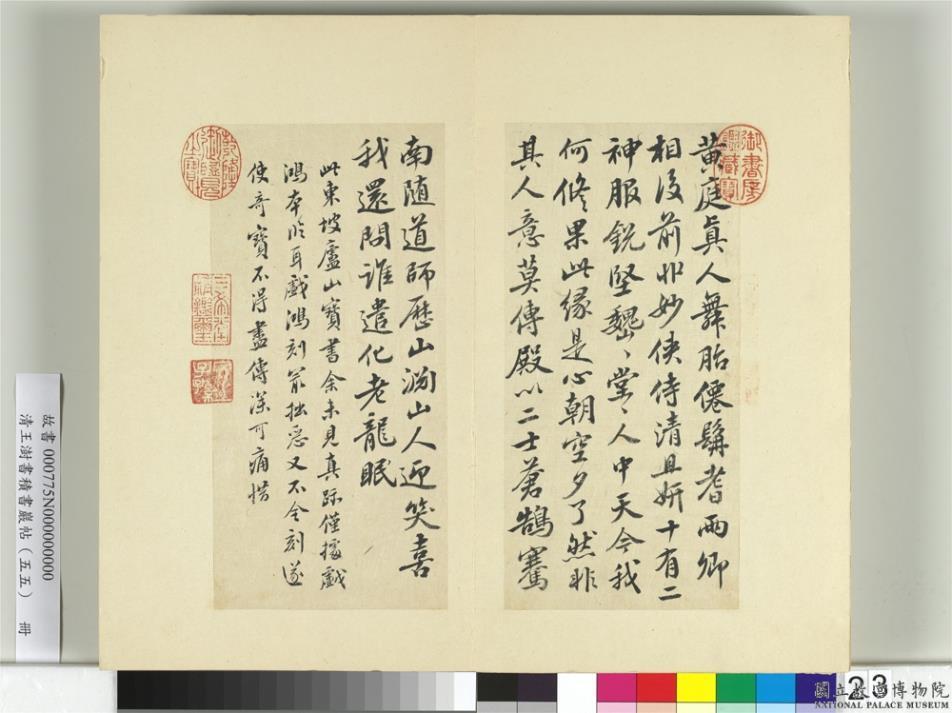 黃庭真人舞胎僊髯耆兩卿
相後前丱妙俠侍清且妍十有二
神服銳堅巍〻堂〻人中天今我
何脩果此緣是心朝空夕了然非
其人意莫傳殿以二士蒼鵠騫
南隨道師歷山淵山人迎笑喜
我還問誰遣化老龍眠
此東坡廬山寶書余未見真跡僅據戲
鴻本臨耳戲鴻刻最拙惡又不全刻遂
使奇寶不得盡傳深可痛惜
御書房
鑑藏寶
乾隆
御覽
之寶
故書 000775N000000000
清王澍書積書巖帖(五五) 冊
23
國立故宮博物院
NATIONAL PALACE MUSEUM